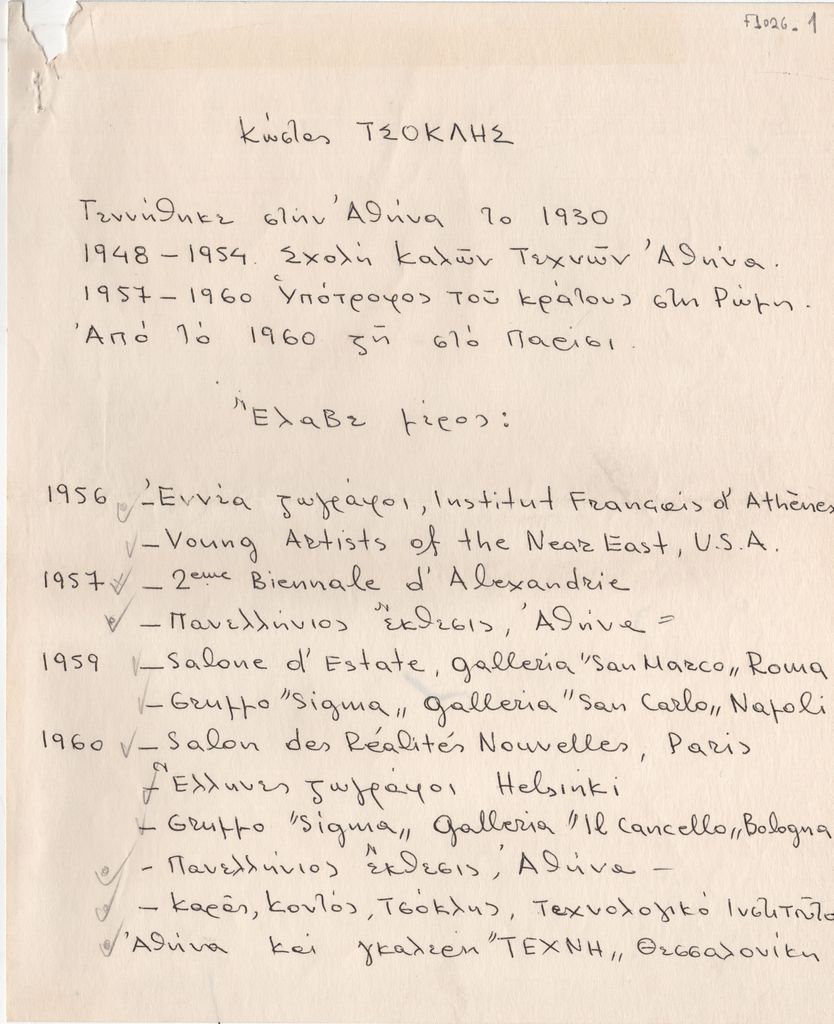 F1026. 1
Κώστας ΤΣΟΚΛΗΣ
Γεννήθηκε στήν Ἀθήνα το 1930
1948 – 1954. Σχολή Καλῶν Τεχνῶν Ἀθήνα.
1957 – 1960 Ὑπότροφος τοῦ κράτους στη Ρώμη.
Ἀπό τό 1960 ζῆ στό Παρίσι.
Ἔλαβε μέρος:
1956 – Ἐννέα ζωγράφοι, Institut Français d'Athènes
– Young Artists of the Near East, U.S.A.
1957 – 2eme Biennale d'Alexandrie
– Πανελλήνιος ἔκθεσις, Ἀθήνα =
1959 – Salone d'Estate, galleria "San Marco„ Roma
– Gruppo "Sigma„ galleria "San Carlo„ Napoli
1960 – Salon des Réalités Nouvelles, Paris
– Ἕλληνες ζωγράφοι Helsinki
– Gruppo "Sigma„ galleria "Il Cancello„ Bologna
– Πανελλήνιος ἔκθεσις, Ἀθήνα –
– Καρᾶς, Κοντός, Τσόκλης, Τεχνολογικό Ινστιτοῦτο
Ἀθήνα και γκαλερή "ΤΕΧΝΗ„ Θεσσαλονίκη